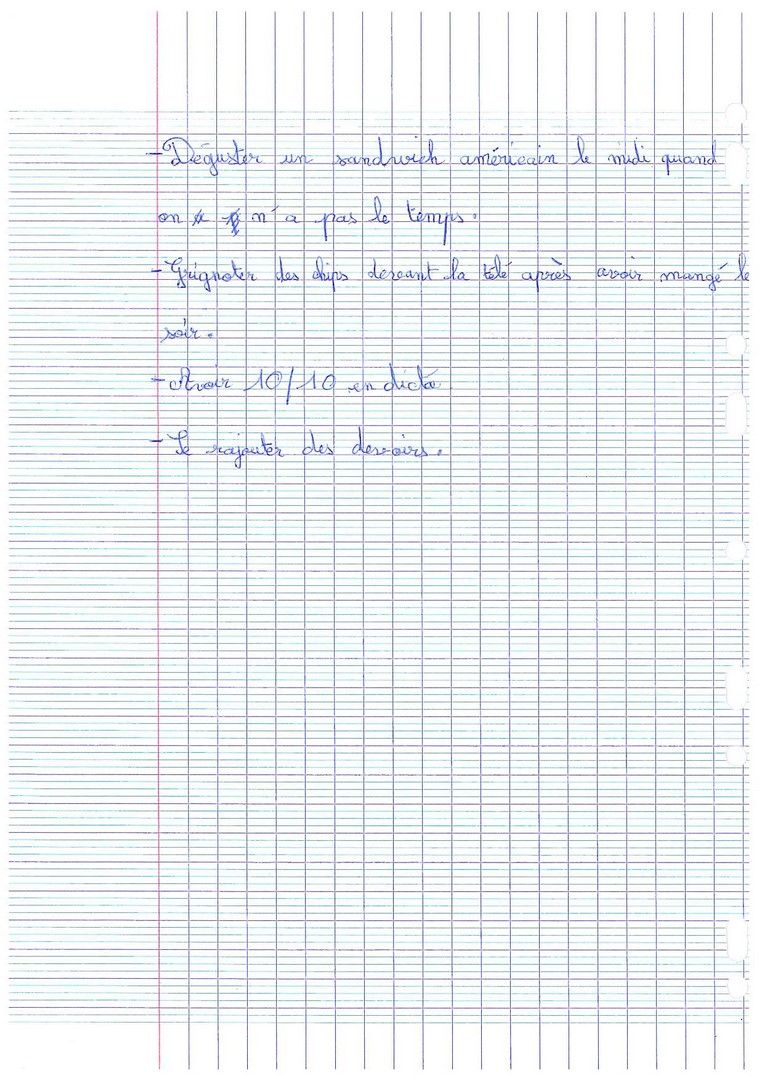 - Déguster un sandwich américain le midi quand
on n'a pas le temps.
- Grignoter des chips devant la télé après avoir mangé le
soir.
- Avoir 10/10 en dictée
- Se rajouter des devoirs.